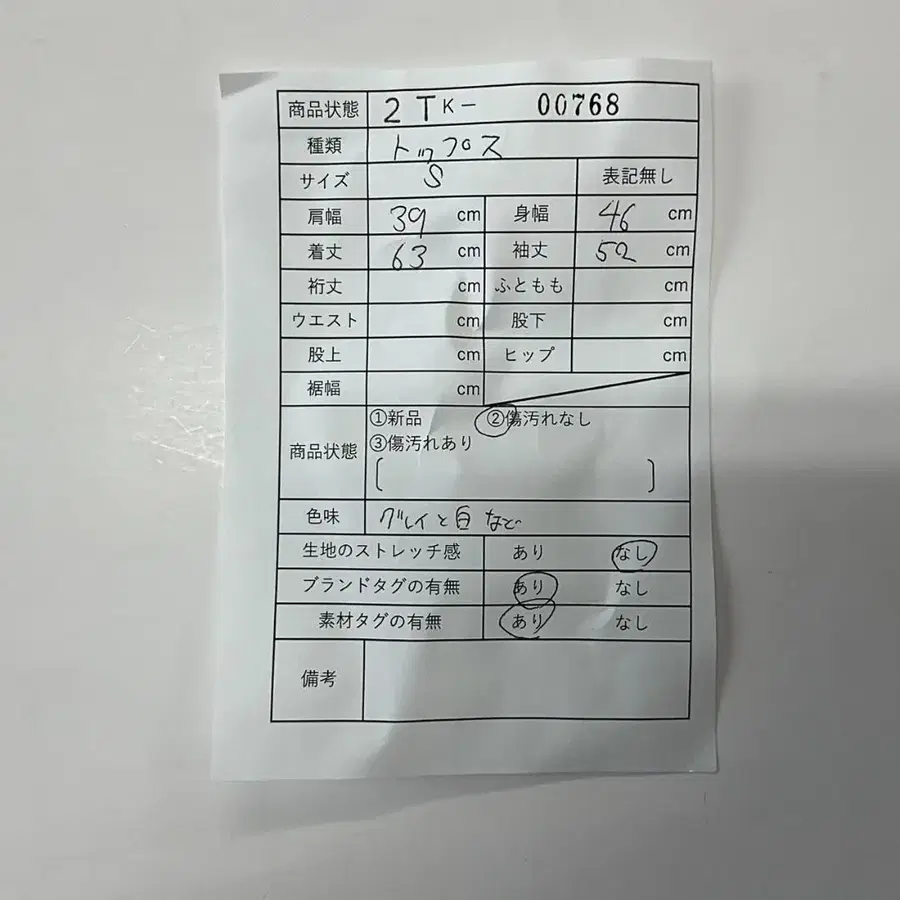 商品状態 2T K- 00768
種類 トップス
サイズ S 表記無し
肩幅 39 cm 身幅 46 cm
着丈 63 cm 袖丈 52 cm
裄丈 cm ふともも cm
ウエスト cm 股下 cm
股上 cm ヒップ cm
裾幅 cm
商品状態 ①新品 ②傷汚れなし
③傷汚れあり
[ ]
色味 グレイと白など
生地のストレッチ感 あり なし
ブランドタグの有無 あり なし
素材タグの有無 あり なし
備考